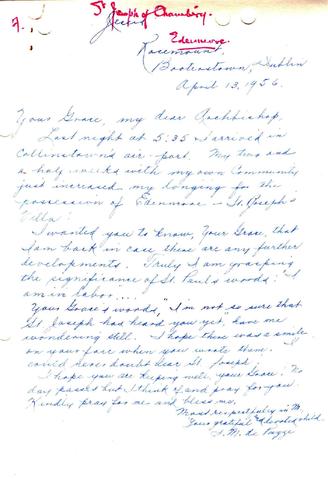 7.
St Joseph of Chambéry.
Edenmore.
Rosemount,
Booterstown, Dublin
April 13, 1956.
Your Grace, my dear Archbishop,
Last night at 5:35 I arrived in
Collinstown's air-port. My two and
a half weeks with my own Community
just increased my longing for the
possession of Edenmore - St. Joseph's
Villa!
I wanted you to know, Your Grace, that
I am back in case there are any further
developments. Truly I am grasping
the significance of St. Paul's words: "I
am in labor....
Your Grace's words, "I'm not so sure that
St. Joseph had heard you yet," have me
wondering still. I hope there was a smile
on your face when you wrote them. I
could never doubt dear St. Joseph.
I hope you are keeping well, your Grace. No
day passes but I think of and pray for you.
Kindly pray for me and bless me.
Most respectfully in
Your grateful & devoted child,